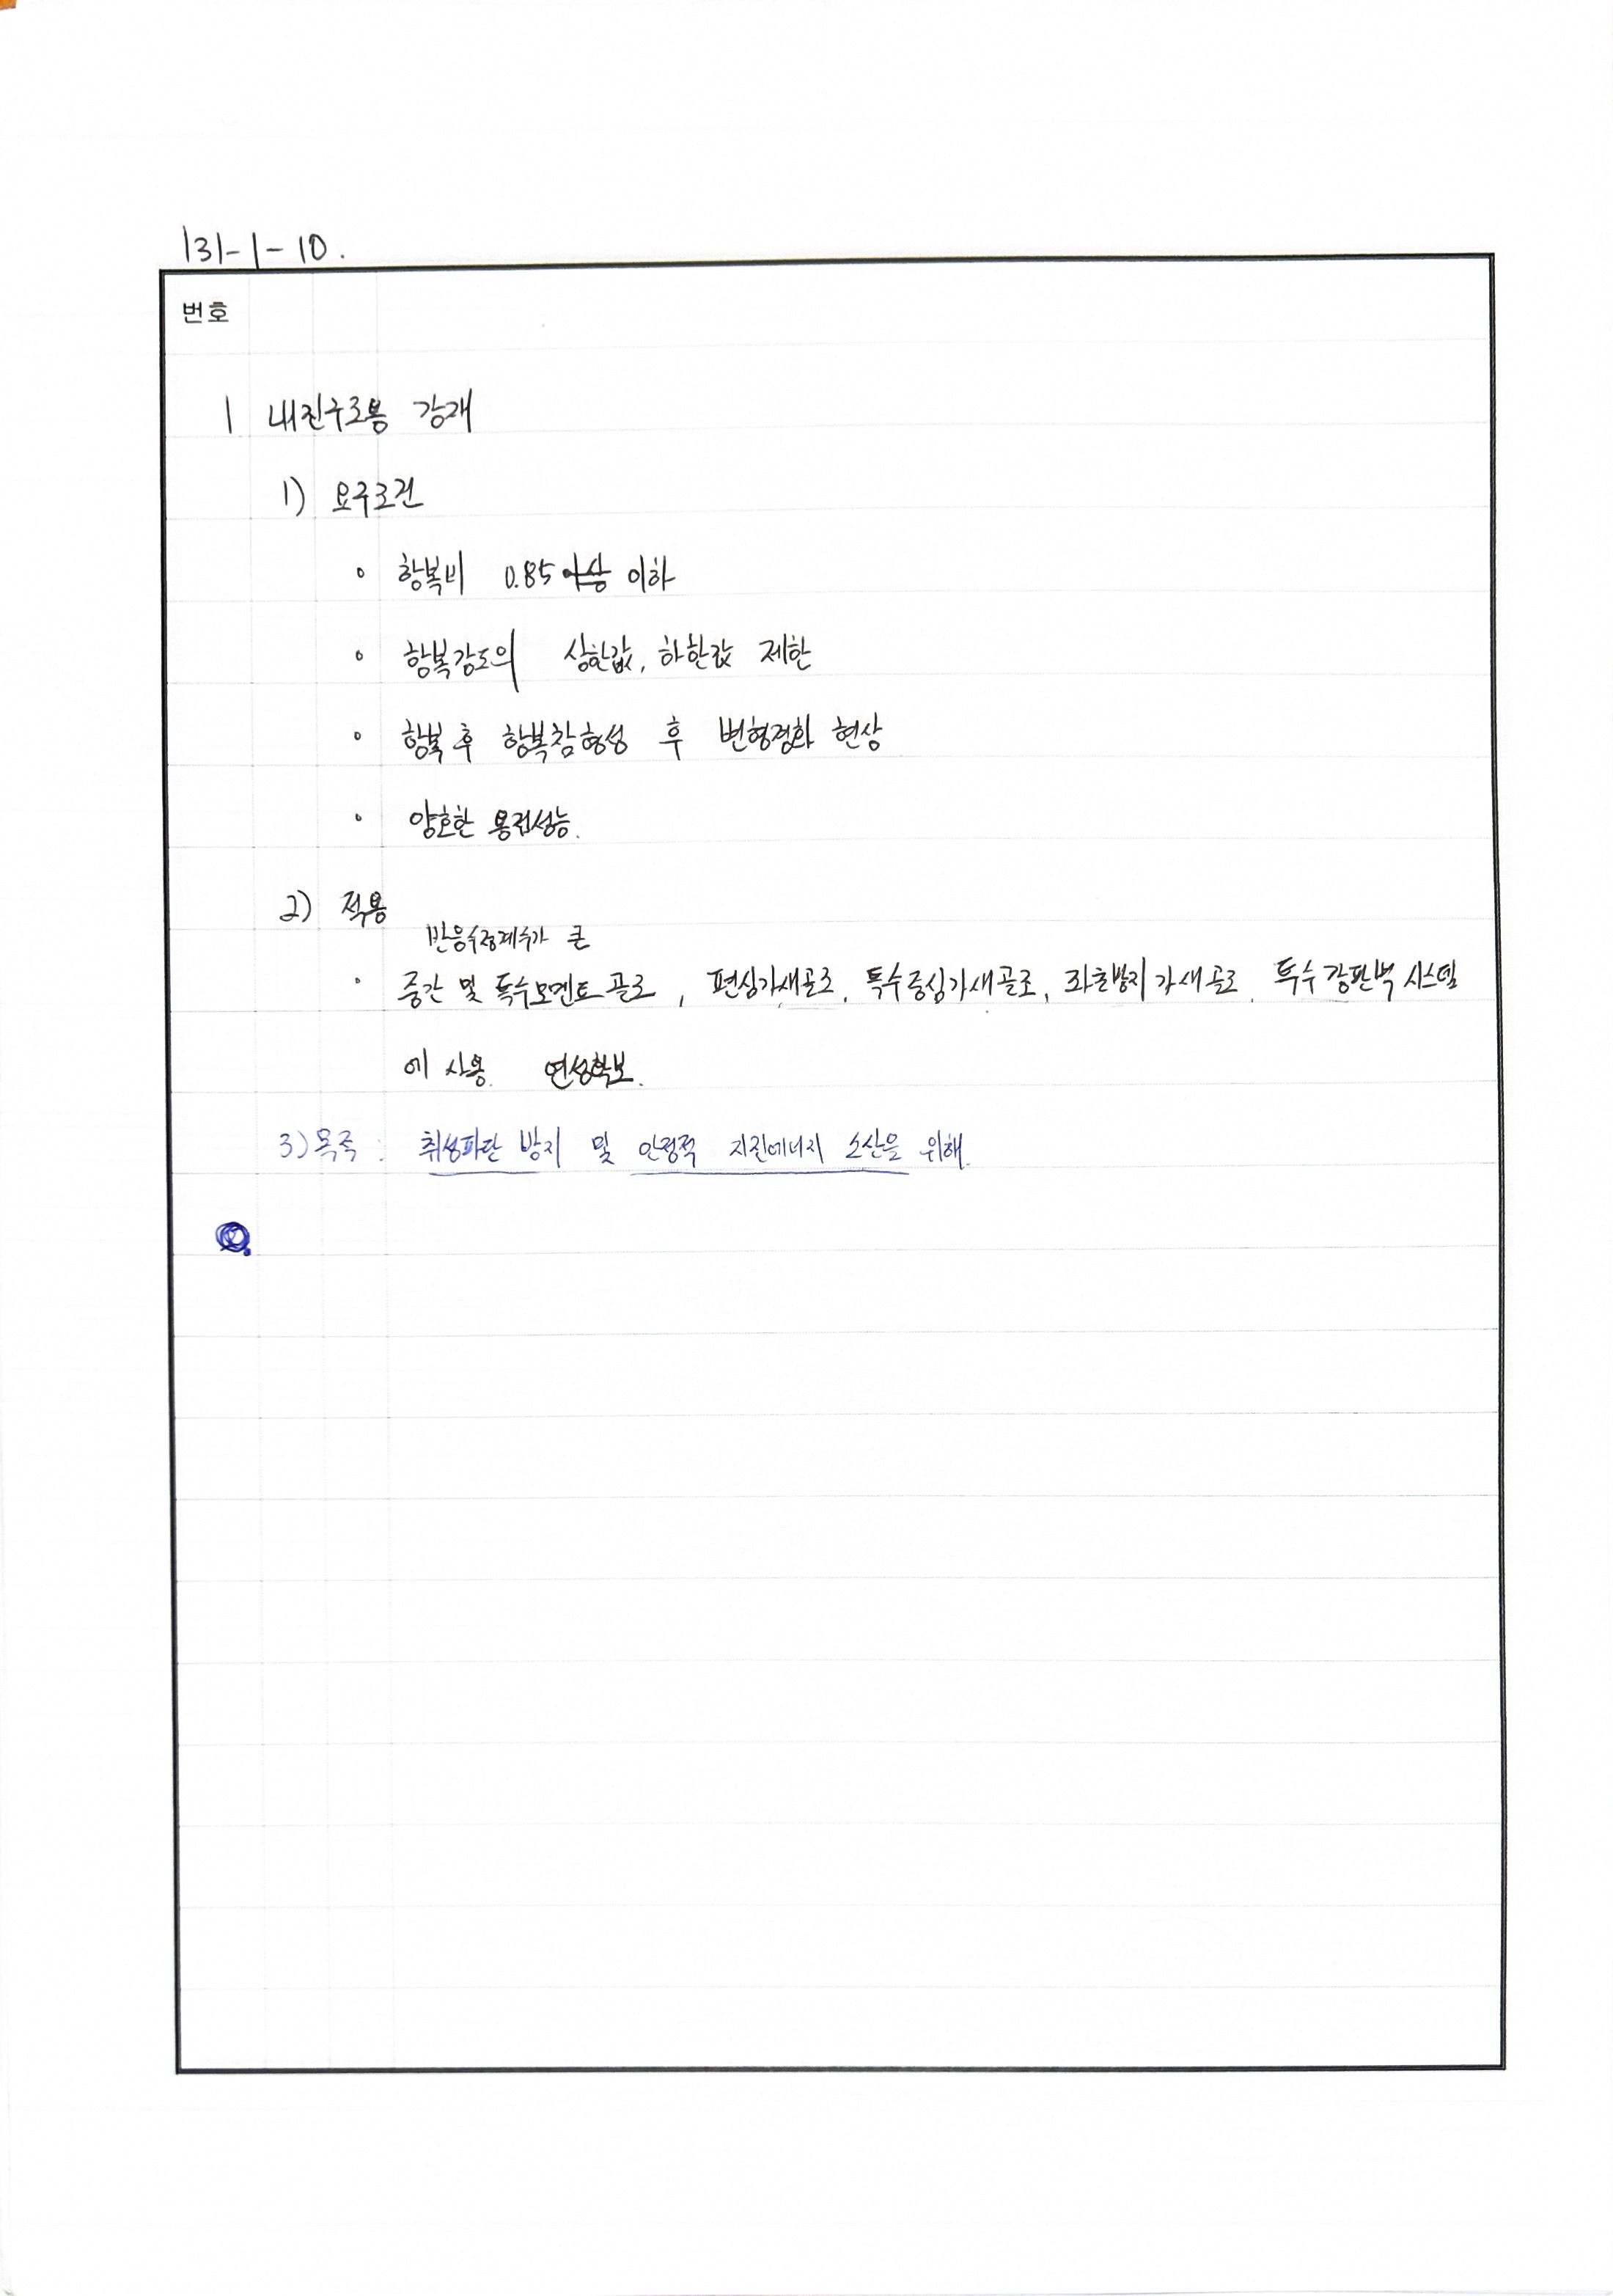 131-1-10.
번호
1 내진구조용 강재
1) 요구조건
◦ 항복비 0.85 이상 이하
◦ 항복강도의 상한값, 하한값 제한
◦ 항복 후 항복참형성 후 변형경화 현상
◦ 양호한 용접성능.
2) 적용
반응수정계수가 큰
· 중간 및 특수모멘트골조, 편심가새골조, 특수중심가새골조, 좌굴방지가새골조, 특수강판벽 시스템
에 사용. 연성확보.
3) 목적 : 취성파단 방지 및 안정적 지진에너지 소산을 위해.